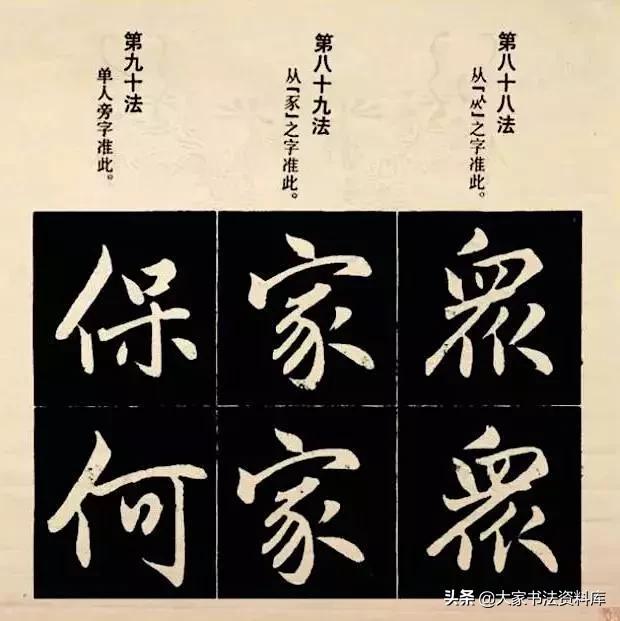 第八十八法
从「」之字准此。
衆
衆
第八十九法
从「豕」之字准此。
家
家
第九十法
单人旁字准此。
保
何
头条 @大家书法资料库